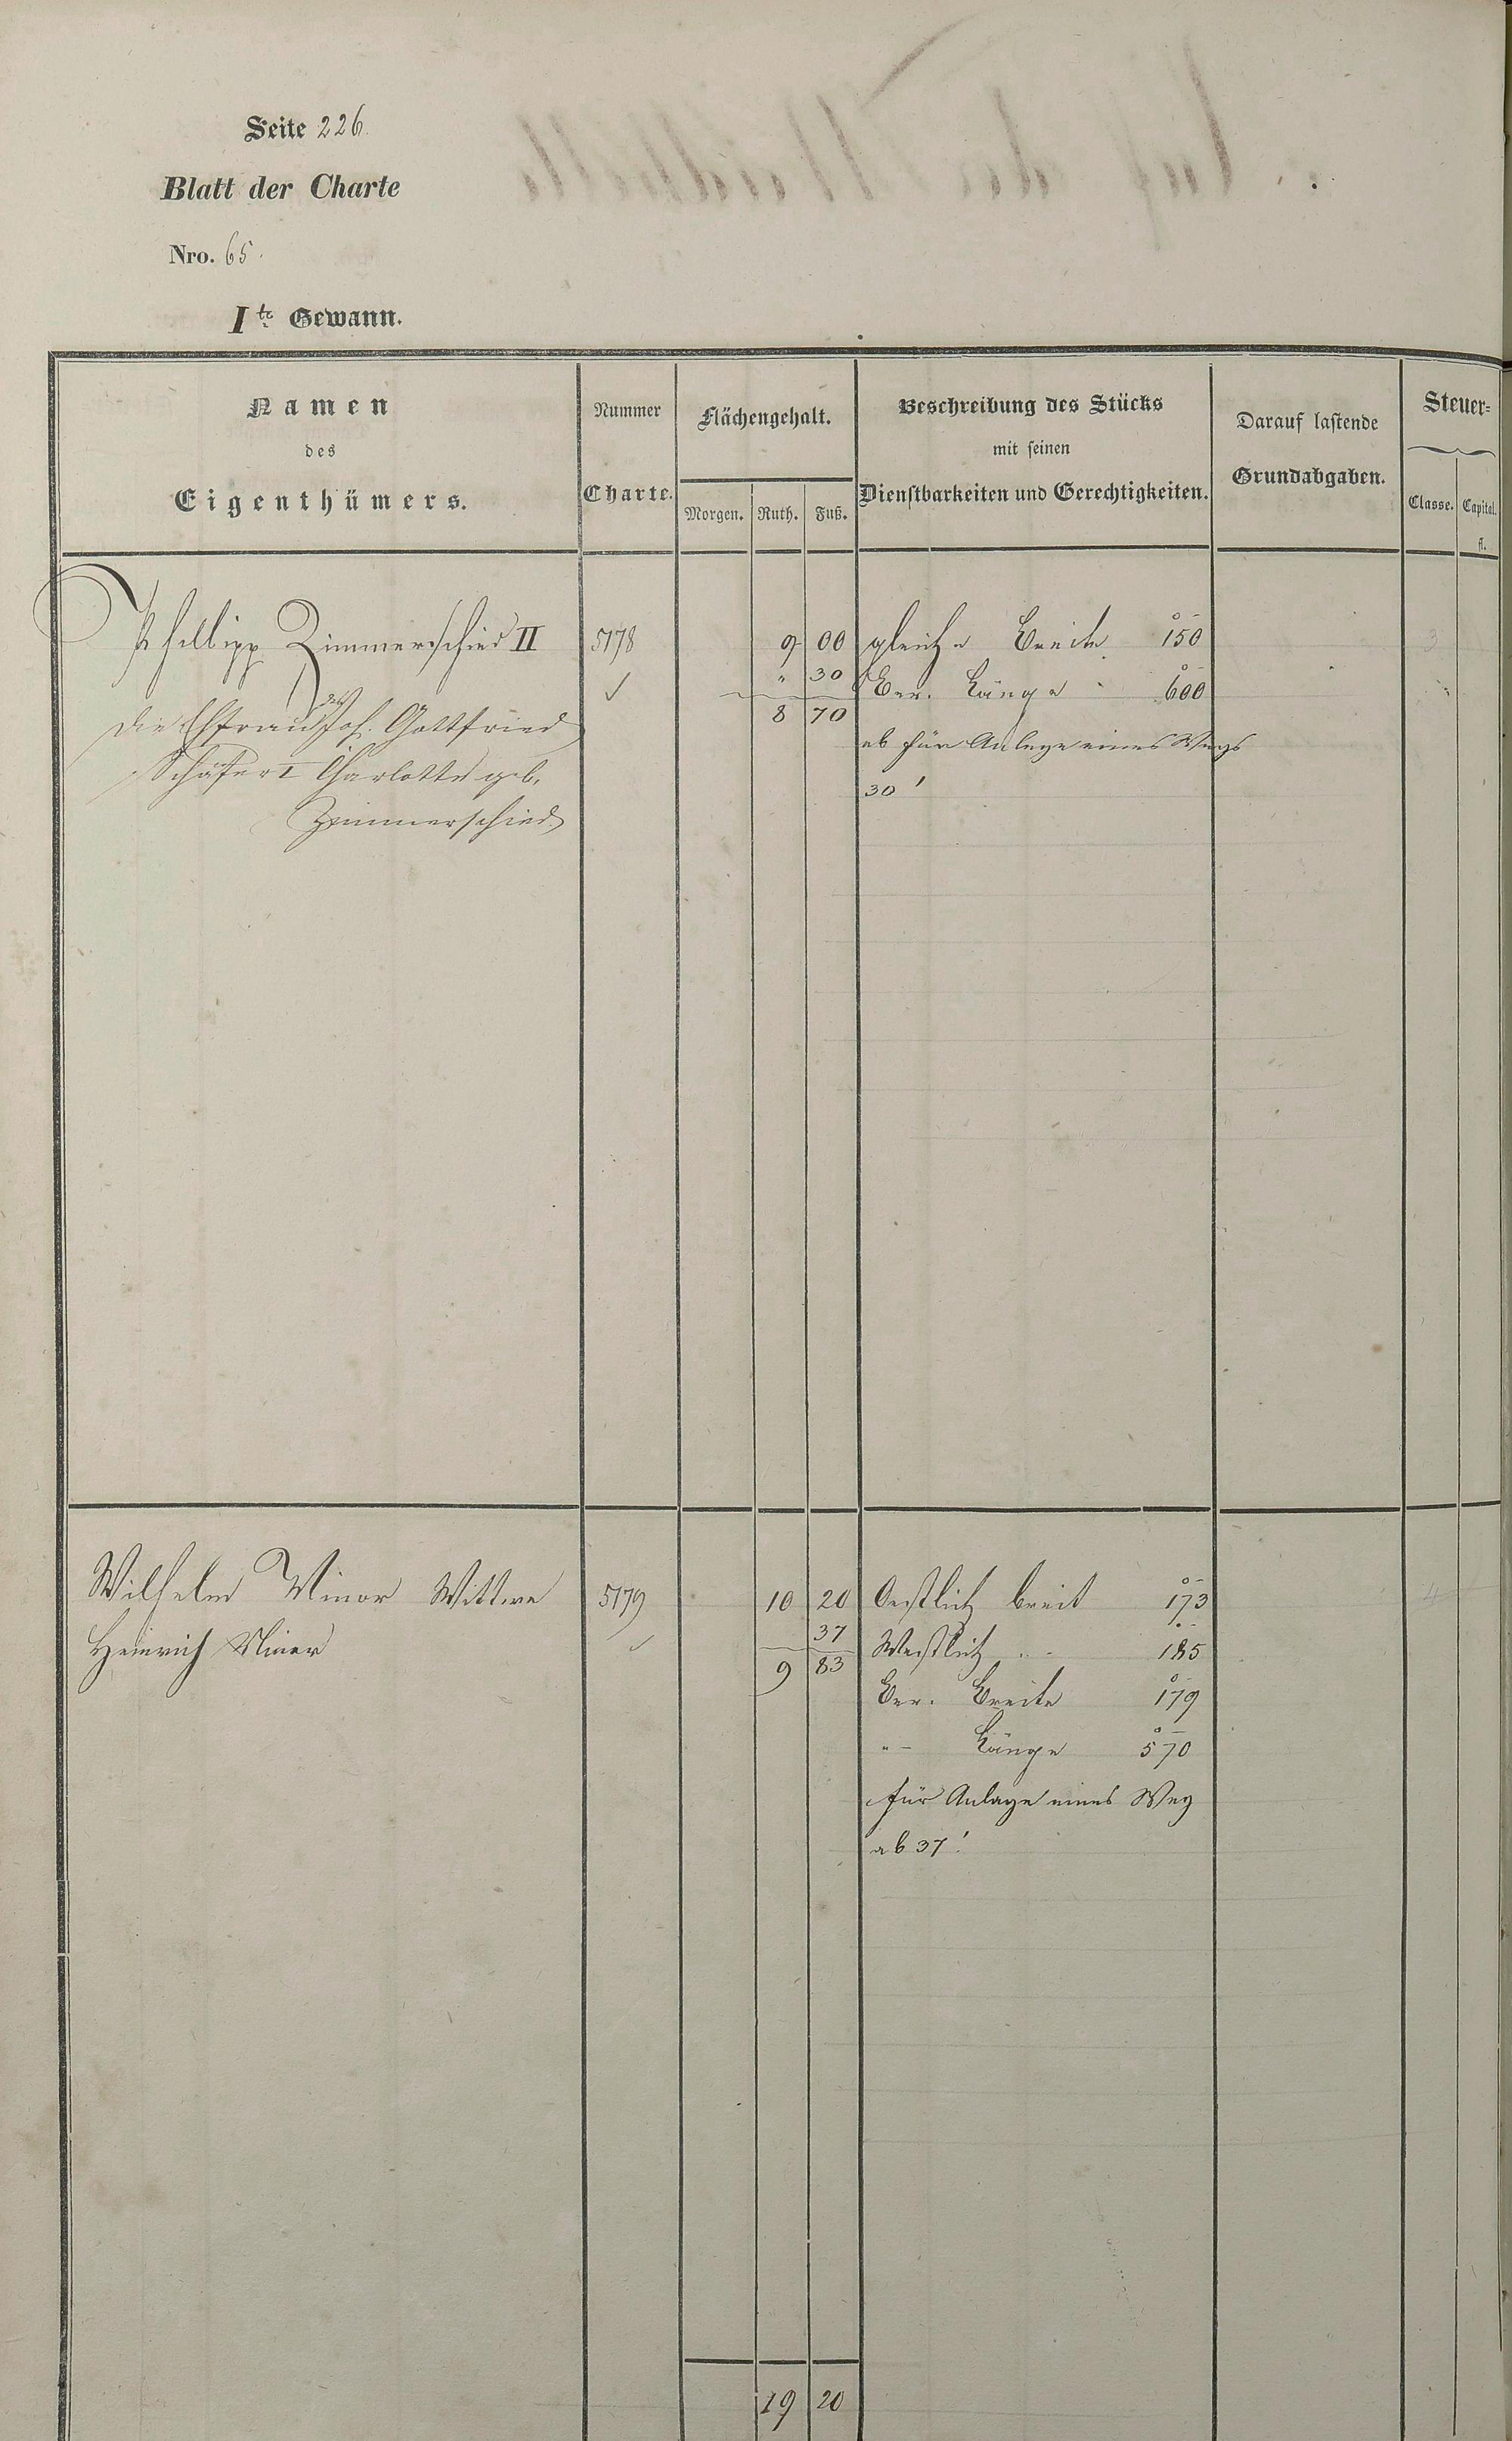 Seite 226.
Blatt der Charte
Nro. 65.
I te Gewann.
Namen des Eigenthümers.
Nummer Charte.
Flächengehalt.
Morgen. Ruth. Fuß.
Beschreibung des Stücks mit seinen Dienstbarkeiten und Gerechtigkeiten.
Darauf lastende Grundabgaben.
Steuer-
Classe. Capital.
fl.
Phillipp Zimmerschied II 5178 9 00 gleiche Breite 150 3
" 30 Ber. Länge 600
8 70
die Ehefrau des Joh. Gottfried
ab für Anlage eines Wegs
Schäfer I Charlotte geb.
30'
Zimmerschied
Wilhelm Minor Wittwe 5179 10 20 Oestlich breit 173 4
Heinrich Minor 37 Westlich " - 185
9 83
Ber. Breite 179
" - Länge 570
für Anlage eines Weg
ab 37'
19 20